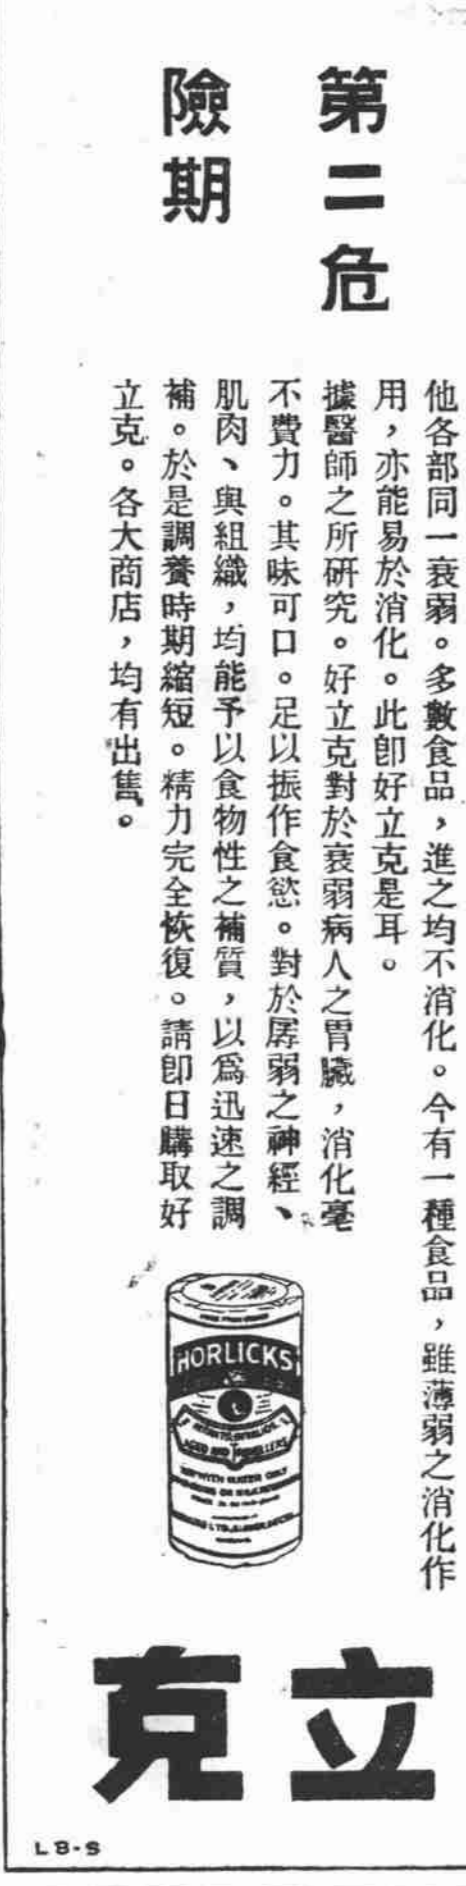 第二危
險期
他各部同一衰弱。多數食品，進之均不消化。今有一種食品，雖薄弱之消化作
用，亦能易於消化。此卽好立克是耳。
據醫師之所硏究。好立克對於衰弱病人之胃臟，消化毫
不費力。其味可口。足以振作食慾。對於孱弱之神經、
肌肉、與組織，均能予以食物性之補質，以爲迅速之調
補。於是調養時期縮短。精力完全恢復。請卽日購取好
立克。各大商店，均有出售。
HORLICKS
AGED AND TRAVELLERS
立克
LB-S